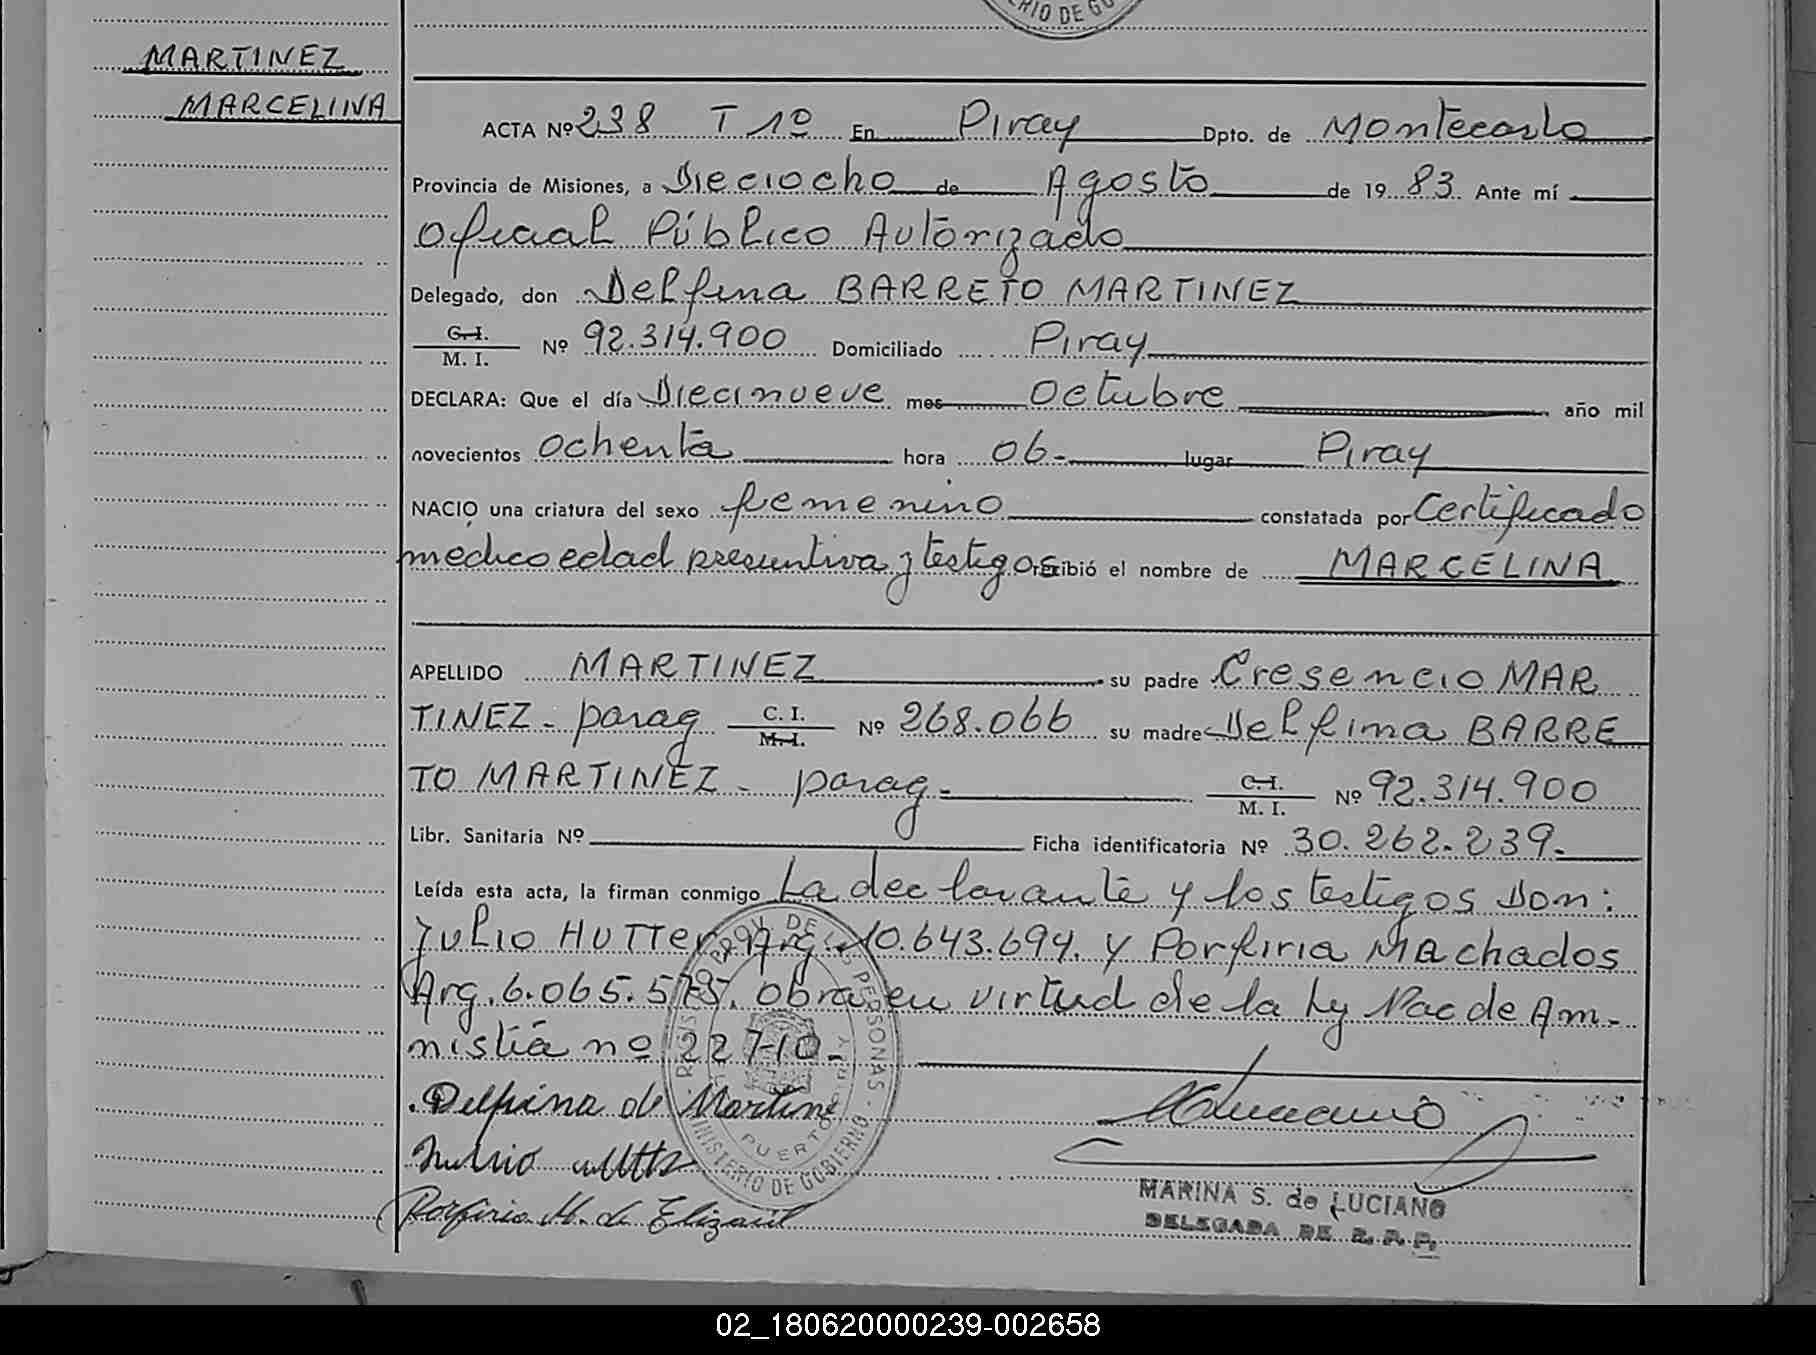 RIO DE GO
MARTINEZ
MARCELINA
ACTA Nº 238 T 1º En Piray Dpto. de Montecarlo
Provincia de Misiones, a Dieciocho de Agosto de 1983. Ante mí
Oficial Público Autorizado
Delegado, don Delfina BARRETO MARTINEZ
C. I.
M. I. Nº 92.314.900 Domiciliado Piray
DECLARA: Que el día Diecinueve mes Octubre año mil
novecientos ochenta hora 06- lugar Piray
NACIO una criatura del sexo femenino constatada por Certificado
medico edad presuntiva y testigos recibió el nombre de MARCELINA
APELLIDO MARTINEZ su padre Cresencio MAR
TINEZ - parag C. I. M. I. Nº 268.066 su madre Delfina BARRE
TO MARTINEZ - parag - C. I. M. I. Nº 92.314.900
Libr. Sanitaria Nº Ficha identificatoria Nº 30.262.239.-
Leída esta acta, la firman conmigo La declarante y los testigos Don:
Julio HUTTer Arg. 10.643.694. y Porfiria Machados
Arg. 6.065.575. obra en virtud de la Ly Nac de Am-
nistia nº 22710.-
Delfina de Martine
Porfiria M. de
REGISTRO PROV. DE LAS PERSONAS - MINISTERIO DE GOBIERNO
PUERTO PIRAY
MARINA S. de LUCIANO
DELEGADA DE R. P. P.
02_180620000239-002658